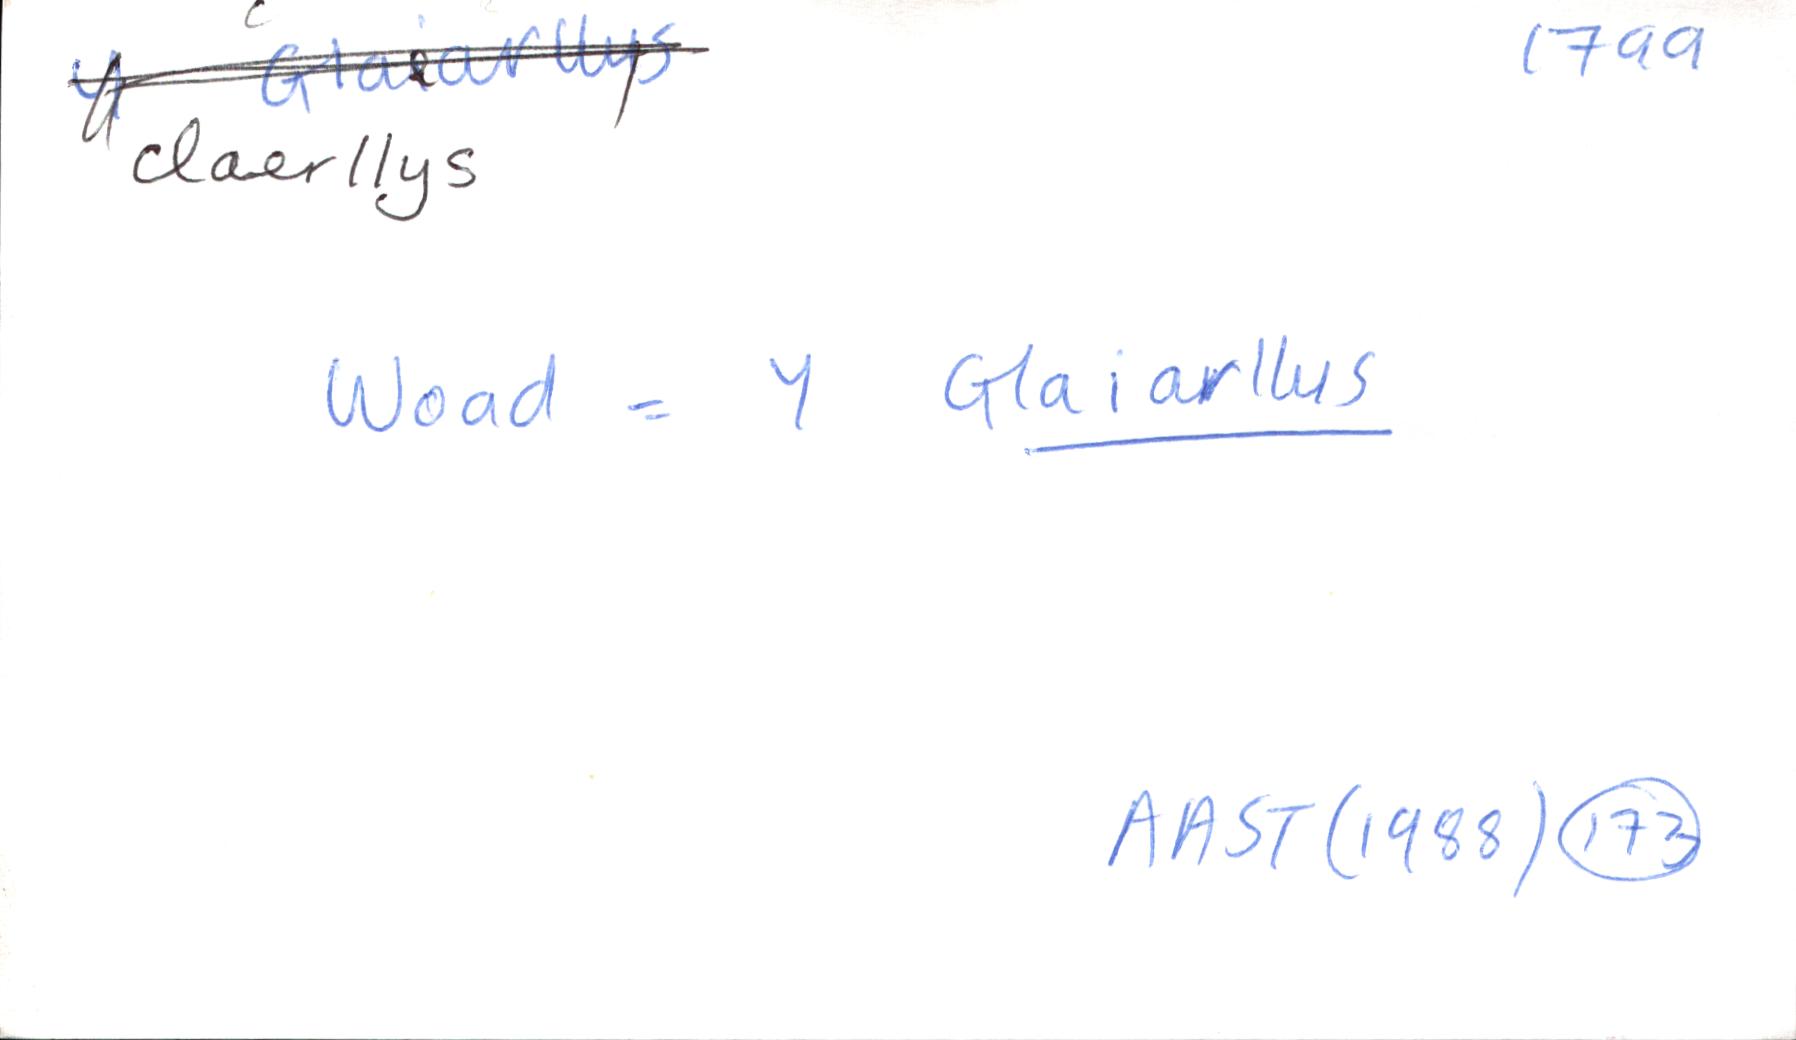 y Glaiarllys 1799
claerllys
Woad = y Glaiarllus
AAST (1988) 173